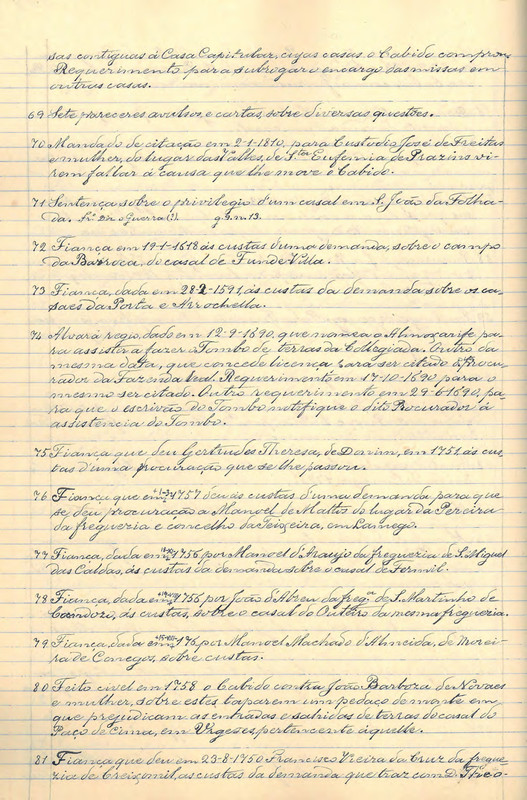 sas contiguas á Casa Capitular, cujas casas o Cabido comprou.
Requerimento para subrogar o encargo das missas em
outras casas.
69 Sete pareceres avulsos, e cartas, sobre diversas questões.
70 Mandado de citação em 2-1-1810, para Custodio José de Freitas
e mulher, do lugar das Valles, de Sta Eufemia de Prazins vi-
rem fallar á causa que lhe move o Cabido.
71 Sentença sobre o privilegio d'um casal em S. João da Folha-
da.
72 Fiança em 19-1-1618 ás custas d'uma demanda, sobre o campo
da Barroca, do casal de Funde Villa.
73 Fiança, dada em 28-2-1591, ás custas da demanda sobre os ca-
saes da Porta e Arrochella.
74 Alvará regio, dado em 12-9-1690, que nomea o Almoxarife pa-
ra assistir a fazer o Tombo de terras da Collegiada. Outro da
mesma data, que concede licença para ser citado o Procu-
rador da Fazenda Real. Requerimento em 17-10-1690 para o
mesmo ser citado. Outro requerimento em 29-6-1690, pa-
ra que o escrivão do Tombo notifique o dito Procurador á
assistencia do Tombo.
75 Fiança que deu Gertrudes Theresa, de Donim, em 1751, ás cus-
tas d'uma procuração que se lhe passou.
76 Fiança que em 1757 deu ás custas d'uma demanda para que
se deu procuração a Manoel de Mattos do lugar da Pereira
da freguezia e concelho da Teixeira, em Lamego.
77 Fiança, dada em 1756, por Manoel d'Araujo da freguezia de S. Miguel
das Caldas, ás custas da demanda sobre o casal de Fermil.
78 Fiança, dada em 1755, por João d'Abreu da fregª de S. Martinho de
Candozo, ás custas, sobre o casal do Outeiro da mesma freguezia.
79 Fiança, dada em por Manoel Machado d'Almeida, de Morei-
ra de Conegos, sobre custas.
80 Feito civel em 1758 o Cabido contra João Barboza de Novaes
e mulher, sobre estes taparem um pedaço de monte em
que prejudicam as entradas e sahidas de terras do casal do
Paço de Cima, em Urgeses pertencente áquelle.
81 Fiança que deu em 23-8-1750 Francisco Vieira da Cruz da fregue-
zia de Creixomil, as custas da demanda que traz com D. Theo-